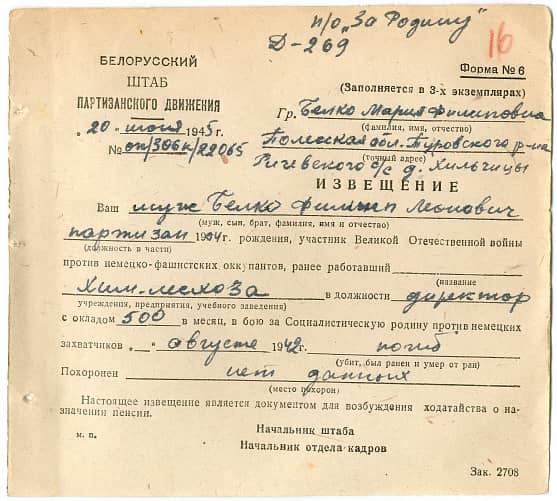 п/о „За Родину"
Д-269
16
БЕЛОРУССКИЙ
ШТАБ
ПАРТИЗАНСКОГО ДВИЖЕНИЯ
Форма № 6
(Заполняется в 3-х экземплярах)
„20" июня 1945 г.
№ оп/306к/22065
Гр. Белко Мария Филиповна
(фамилия, имя, отчество)
Полесская обл. Туровского р-на
(точный адрес)
Ричевского с/с д. Хильчицы
ИЗВЕЩЕНИЕ
Ваш муж Белко Филипп Леонович
(муж, сын, брат, фамилия, имя и отчество)
партизан 1904 г. рождения, участник Великой Отечественной войны
(должность в части)
против немецко-фашистских оккупантов, ранее работавший
(название
Хим. лесхоза в должности директор
учреждения, предприятия, учебного заведения)
с окладом 500 в месяц, в бою за Социалистическую родину против немецких
захватчиков „ " августе 1942 г. погиб
(убит, был ранен и умер от ран)
Похоронен нет данных
(место похорон)
Настоящее извещение является документом для возбуждения ходатайства о на-
значении пенсии.
Начальник штаба
м. п.
Начальник отдела кадров
Зак. 2708